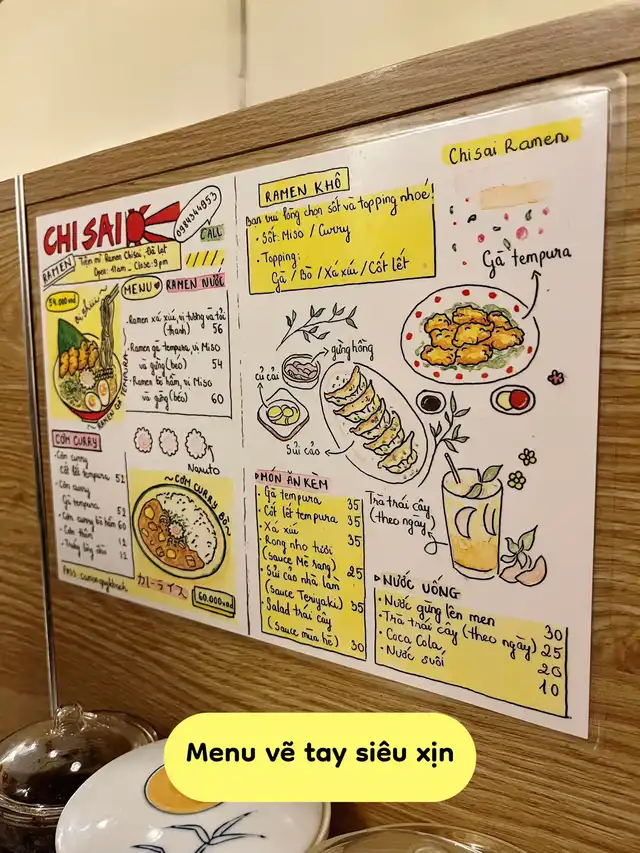 CHISAI
RAMEN
0984344853
CALL
Tiệm mì Ramen Chisai, Đà Lạt
Open: 11am - Close: 9pm
54.000vnd
MENU
RAMEN NƯỚC
- Ramen xá xíu, vị tương và tỏi
(thanh) 56
- Ramen gà tempura, vị Miso
và gừng (béo) 54
- Ramen bò hầm, vị Miso
và gừng (béo) 60
~ RAMEN GÀ TEMPURA ~
Naruto
CƠM CURRY
- Cơm curry
Cốt lết tempura 52
- Cơm curry
Gà tempura 52
- Cơm curry bò hầm 60
- Cơm thêm 12
12
~ CƠM CURRY BÒ ~
カレーライス
60.000vnd
RAMEN KHÔ
Bạn vui lòng chọn sốt và topping nhoé!
- Sốt: Miso / Curry
- Topping:
Gà / Bò / Xá xíu / Cốt lết
Chisai Ramen
Gà tempura
gừng hồng
củ cải
Sủi cảo
MÓN ĂN KÈM
- Gà tempura 35
- Cốt lết tempura 35
- Xá xíu 35
- Rong nho tươi
(sauce Mè rang) 25
- Sủi cảo nhà làm
(sauce Teriyaki) 35
- Salad trái cây
(sauce mùa hè) 30
Trà trái cây
(theo ngày)
NƯỚC UỐNG
- Nước gừng lên men 30
- Trà trái cây (theo ngày) 25
- Coca Cola 20
- Nước suối 10
Menu vẽ tay siêu xịn